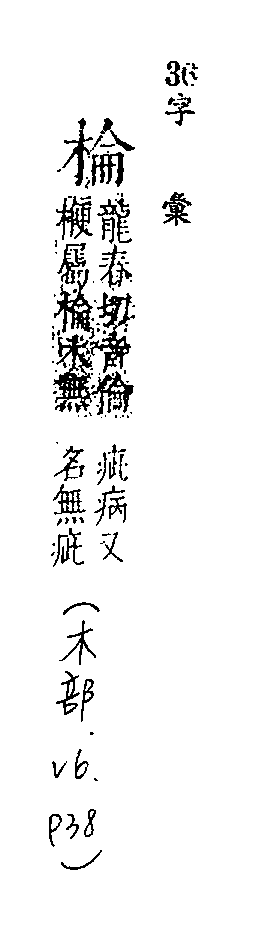 36字彙
棆
龍春切音倫
楩屬棆木無
疵病又
名無疵
(木部.v6.p38)